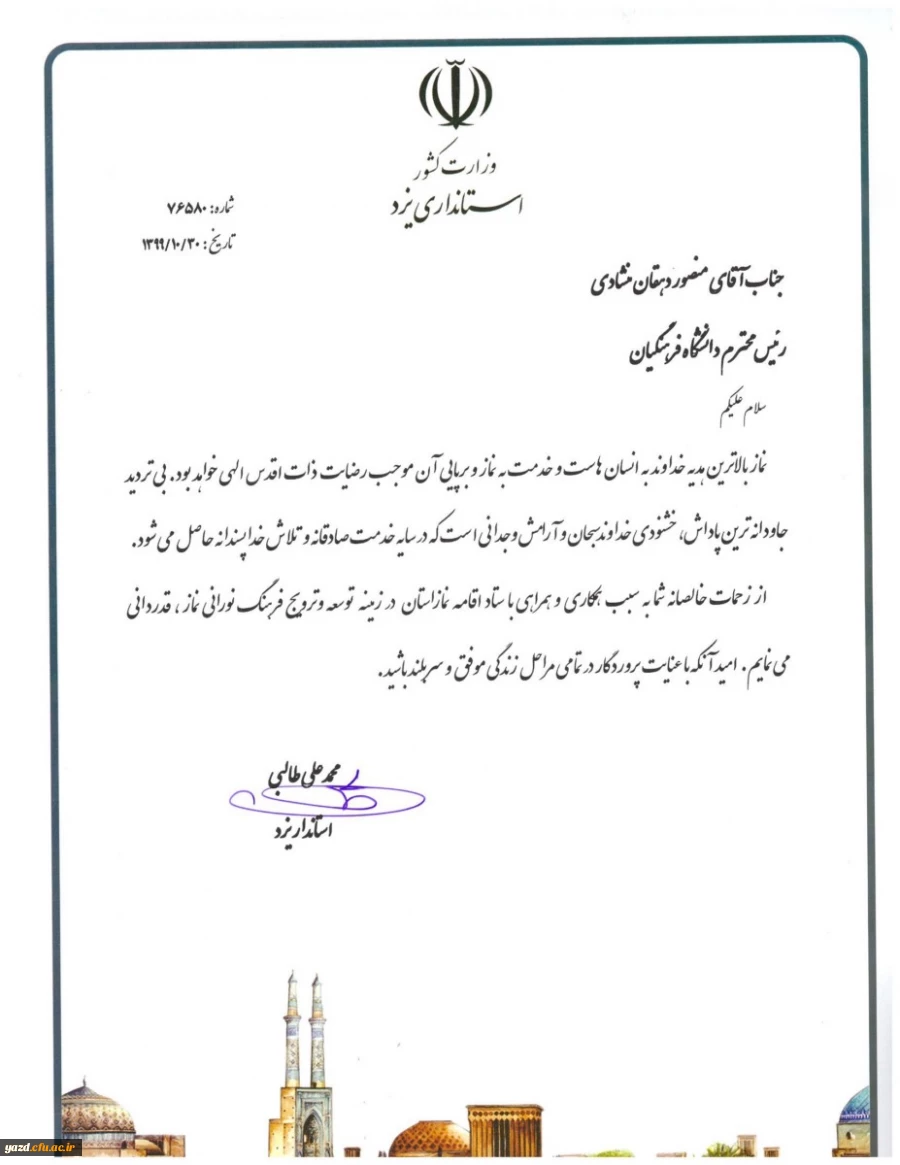 وزارت کشور
استانداری یزد
شماره: ۷۶۵۸۰
تاریخ: ۱۳۹۹/۱۰/۳۰
جناب آقای منصور دهقان منشادی
رئیس محترم دانشگاه فرهنگیان
سلام علیکم
نماز بالاترین هدیه خداوند به انسان هاست و خدمت به نماز و برپایی آن موجب رضایت ذات اقدس الهی خواهد بود. بی تردید
جاودانه ترین پاداش، خشنودی خداوند سبحان و آرامش وجدانی است که در سایه خدمت صادقانه و تلاش خداپسندانه حاصل می شود.
از زحمات خالصانه شما به سبب همکاری و همراهی با ستاد اقامه نماز استان در زمینه توسعه و ترویج فرهنگ نورانی نماز، قدردانی
می نمایم. امید آنکه با عنایت پروردگار در تمامی مراحل زندگی موفق و سربلند باشید.
محمد علی طالبی
استاندار یزد
yazd.cfu.ac.ir